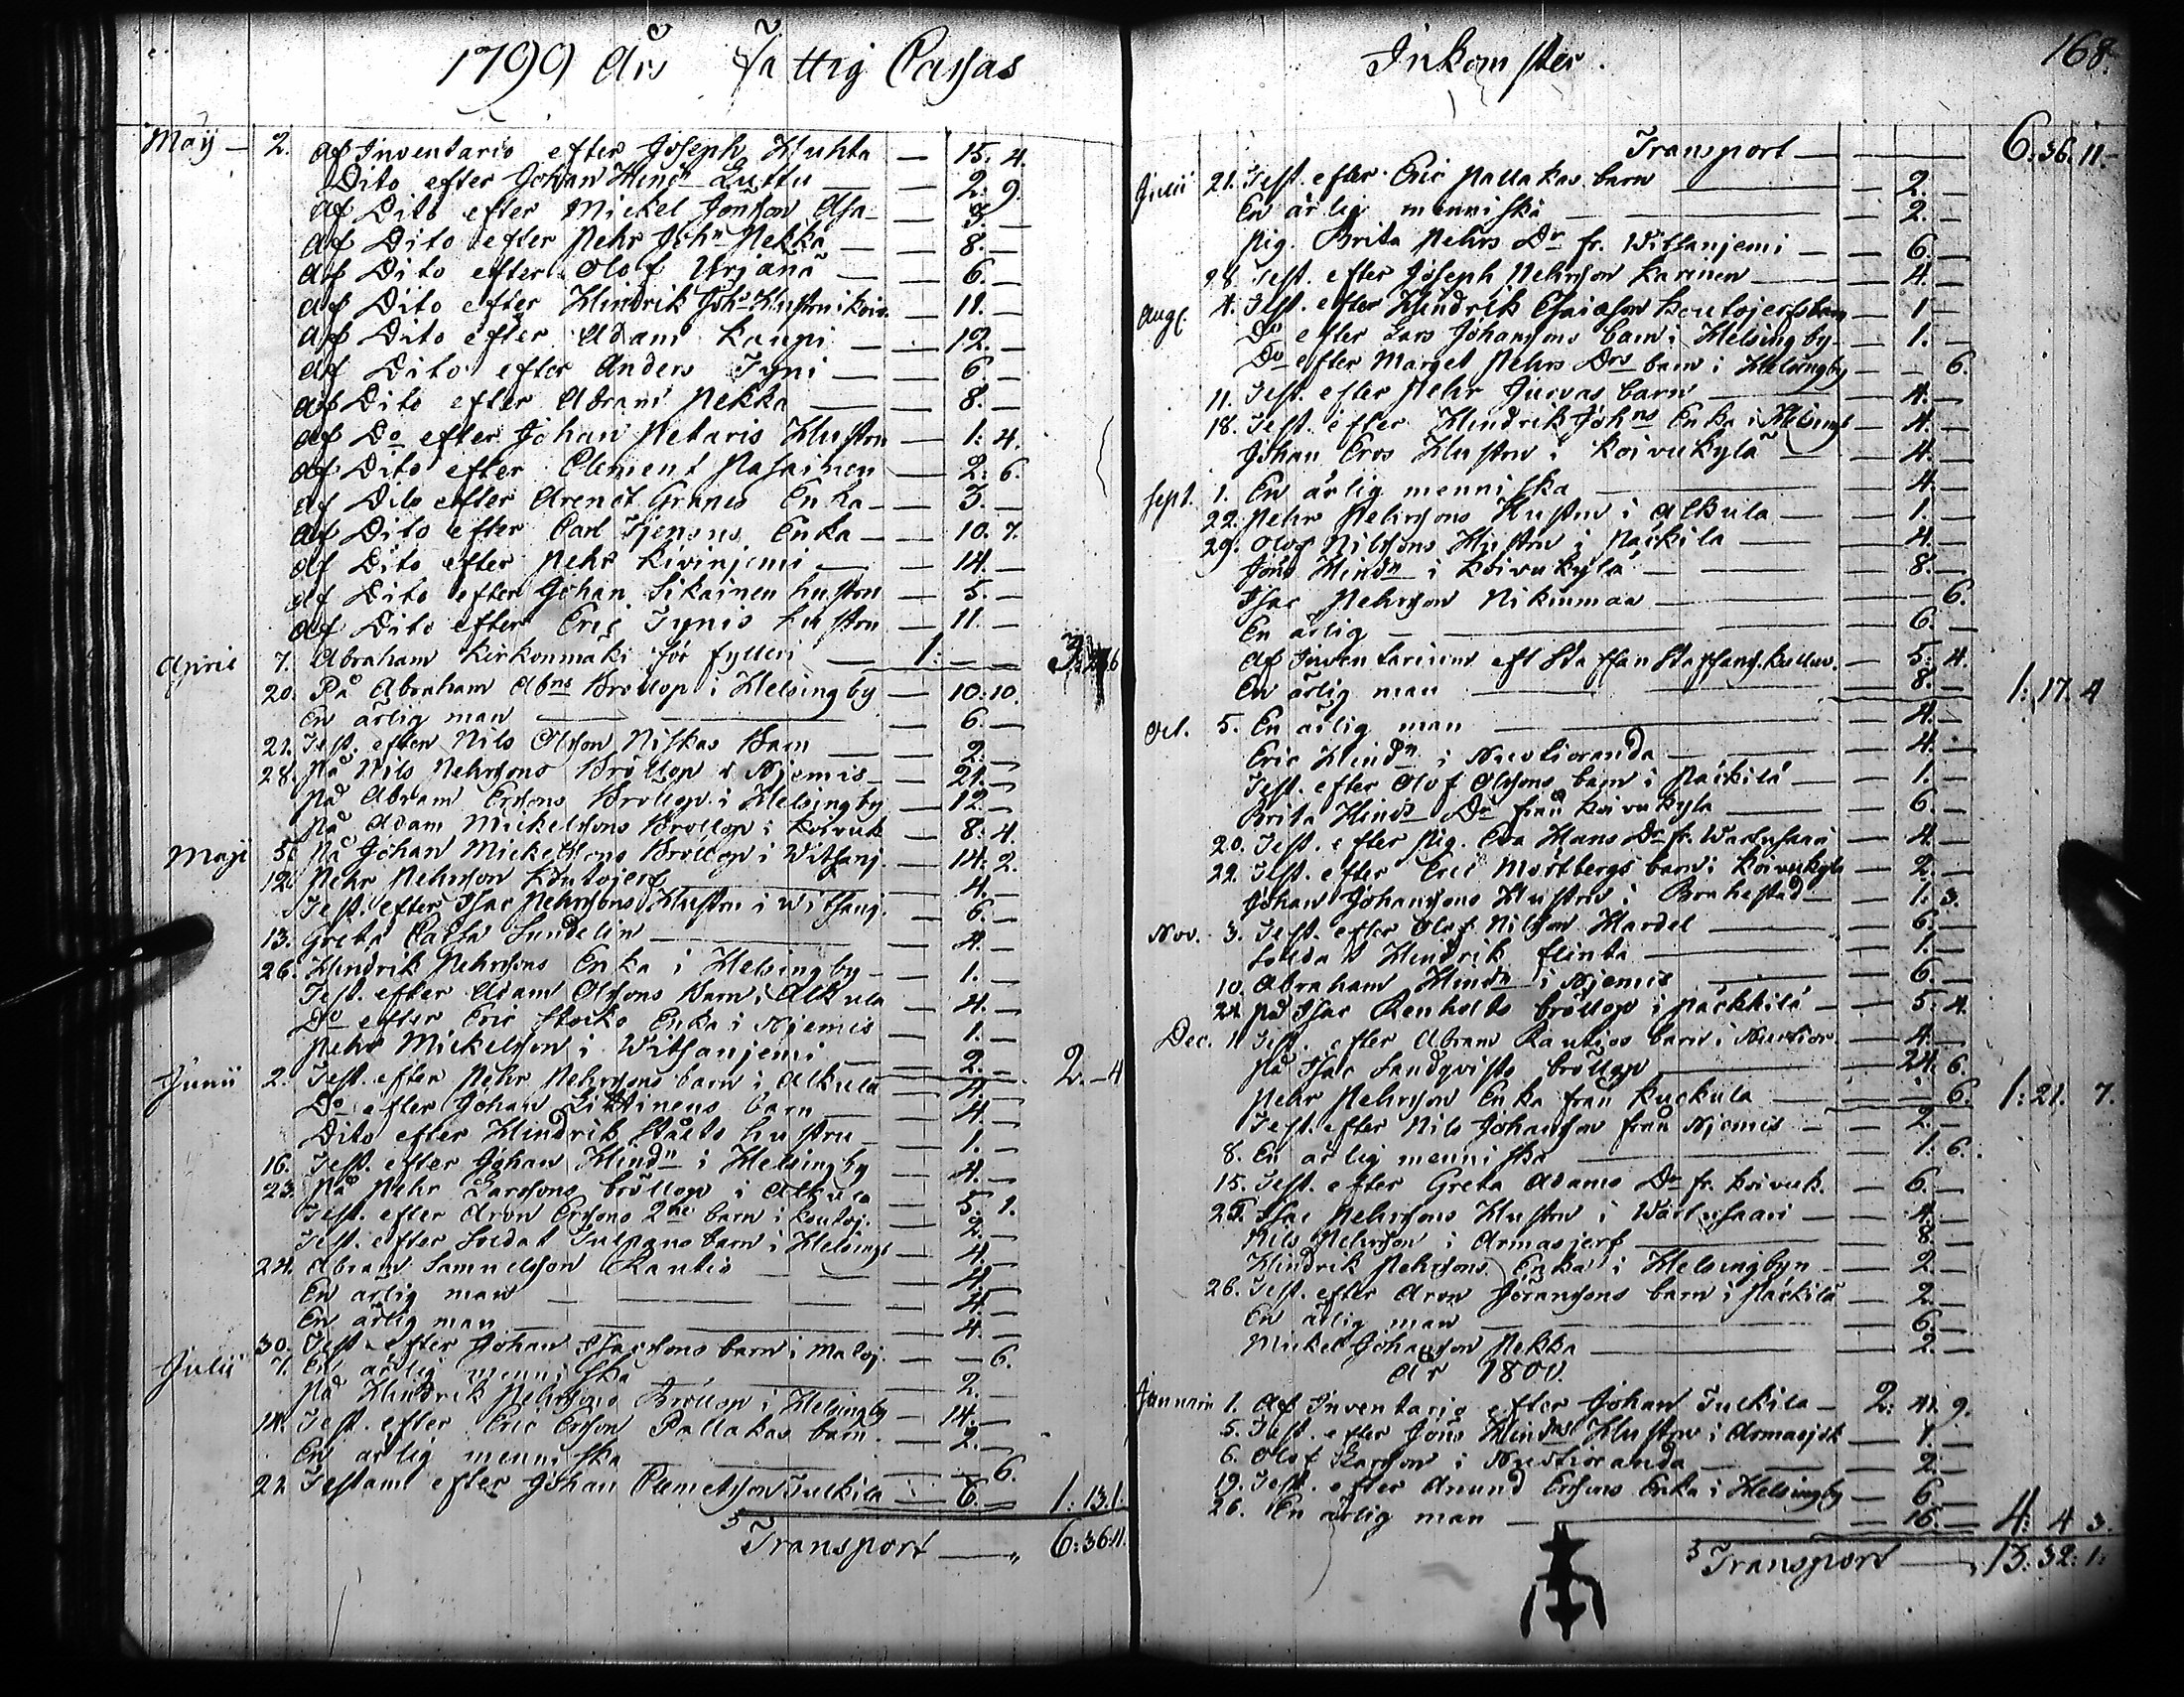 1799 Års Fattig Cassas
May - 2. Af Inventario efter Joseph Huhta - 15. 4.
Dito efter Johan Hindn Luttu - 2. 9.
Af Dito efter Mickel Jonsson Asa - 3. -
Af Dito efter Pehr John Pekka - 8. -
Af Dito efter Olof Yrjänä - 6. -
Af Dito efter Hindrik Johs Hustru - 11. -
Af Dito efter Adam Kaupi - 12. -
Af Dito efter Anders Tyni - 6 -
Af Dito efter Adram Pekka - 8. -
Af Do efter Johan Petaris Hustru - 1: 4.
Af Dito efter Clement Pasainen - 2: 6.
Af Dito efter Arendt Granes Enka - 3. -
Af Dito efter Carl Enka - 10. 7.
Af Dito efter Pehr Kivinjemi - 14. -
Af Dito efter Johan Sikainen hustru - 5. -
Af Dito efter Eric Tynis hustru - 11. -
April 7. Abraham Kirkonmaki för fylleri - 1: - -
20. På Abraham Abns Bröllop i Helsingby - 10: 10.
En ärlig man - 6. -
21. Test. efter Nils Olsson Niskas Barn - 2. -
28. På Nils Pehrssons Bröllop i Njemis - 21. -
På Abram Ersons Bröllop i Helsingby - 12. -
På Adam Mickelssons Bröllop i Koivuk - 8: 4.
Maji 5. På Johan Mickelssons Bröllop i Witsanj. - 14: 2.
12. Pehr Pehrsson Koutojerf - 4. -
Test. efter Isac Pehrssons Hustru i Witsanj. - 6. -
13. Greta Caisa Sundelin - 4. -
26. Hindrik Pehrssons Enka i Helsingby - 1. -
Test. efter Adam Olssons Barn i Alkula - 4. -
Do efter Eric Stocks Enka i Njemis - 1. -
Pehr Mickelsson i Witsanjemi - 2. - 2. - 4
Junii 2. Test. efter Pehr Pehrssons barn i Alkula - 4. -
Do efter Johan barn - 4. -
Dito efter Hindrik Ståhls hustru - 1. -
16. Test. efter Johan Hindn i Helsingby - 4. -
23. På Pehr Larssons bröllop i Alkula - 5. 1.
Test. efter Aron Ersons 2ne barn i Koutoj. - 2. -
Test. efter Soldat barn i Helsingb - 4. -
24. Abram Samuelsson Rautio - 4. -
En ärlig man - 4. -
En ärlig man - 4. -
30. Test. efter Johan Isacssons barn i Matoj. - - 6.
Julii 7. En ärlig menniska - 2. -
På Hindrik Pehrssons Bröllop i Helsingby - 14. -
14. Test. efter Eric Ersson Pallakas barn - 2. -
En ärlig menniska - - 6.
21 Testamt efter Johan Clemetsson Tulkila - 6. - 1: 13. 1.
Transport - 6: 36: 11.
Inkomster.
168.
Transport - 6: 36. 11. -
Julii 21. Test. efter Eric Pallakas barn - 2. -
En ärlig menniska - 2. -
Pig. Brita Pehrs Dr fr. Witsanjemi - 6. -
28. Test. efter Joseph Pehrsson Karinen - 4. -
Aug. 4. Test. efter Hindrik Esaiasson Koutojerfs barn - 1 -
Do efter Lars Johanssons barn i Helsingby - 1. -
Do efter Marget Pehrs Drs barn i Helsingby - - 6.
11. Test. efter Pehr Juovas barn - 4. -
18. Test. efter Hindrik Johns Enka i Helsingb - 4. -
Johan Ers Hustru i Koivukylä - 4. -
Sept. 1. En ärlig menniska - 4. -
22. Pehr Pehrssons Hustru i Alkula - 1. -
29. Olof Nilssons Hustru i Päckilä - 4. -
Jöns Hindn i Koivukylä - 8. -
Isac Pehrsson Nikinmaa - - 6.
En ärlig - 6. -
Af Inventarium eft Staffan Staffans. - 5. 4.
En ärlig man - 8. - 1: 17. 4
Oct. 5. En ärlig man - 4. -
Eric Hindn i Nuotioranda - 4. -
Test. efter Olof Olssons barn i Päckilä - 1. -
Brita Hinds Dr från Koivukylä - 6. -
20. Test. efter Pig. Eva Hans Dr fr. Wartusaari - 4. -
22. Test. efter Eric Mortbergs barn i Koivukylä - 2. -
Johan Johanssons Hustru i Brahestad - 1: 3.
Nov. 3. Test. efter Olof Nilsson Mardel - 6. -
Soldat Hindrik Flinta - 1. -
10. Abraham Hindn i Njemis - 6. -
24. På Isac Renholts bröllop i Päckkilä - 5. 4.
Dec. 1. Test. efter Abram Rautios barn i Nuotior. - 4. -
På Isac Sandqvists bröllop - 24. 6.
Pehr Pehrsson Enka från Kuckula - - 6. 1: 21. 7.
Test. efter Nils Johansson från Njemis - 2. -
8. En ärlig menniska - 1: 6.
15. Test. efter Greta Adams Dr fr. Koivuk. - 6. -
25. Isac Pehrssons Hustru i Wartusaari - 4. -
Nils Pehrsson i Armasjerf - 8. -
Hindrik Pehrssons Enka i Helsingbyn - 2. -
26. Test. efter Aron Göranssons barn i Päckilä - 2. -
En ärlig man - 6. -
Mickel Johansson Pekka - 2. -
År 1800.
Januarii 1. Af Inventario efter Johan Tulkila - 2: 41. 9.
5. Test. efter Jöns Hindns Hustru i Armasjerf - 1. -
6. Olof Larsson i Nuotioranda - 2. -
19. Test. efter Amund Ersons Enka i Helsingby - 6. -
26. En ärlig man - 16. - 4: 4 3.
Transport - 13: 32: 1.